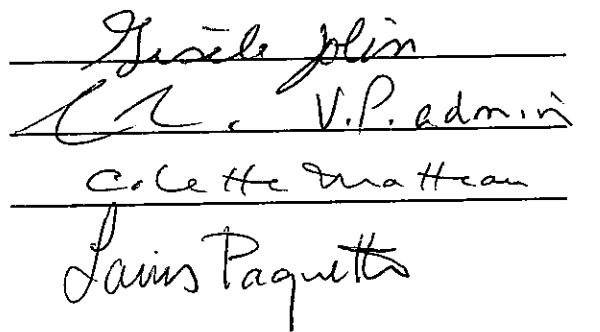 Gisèle Jolin
V.P. admin
Colette Matteau
Louis Paquette